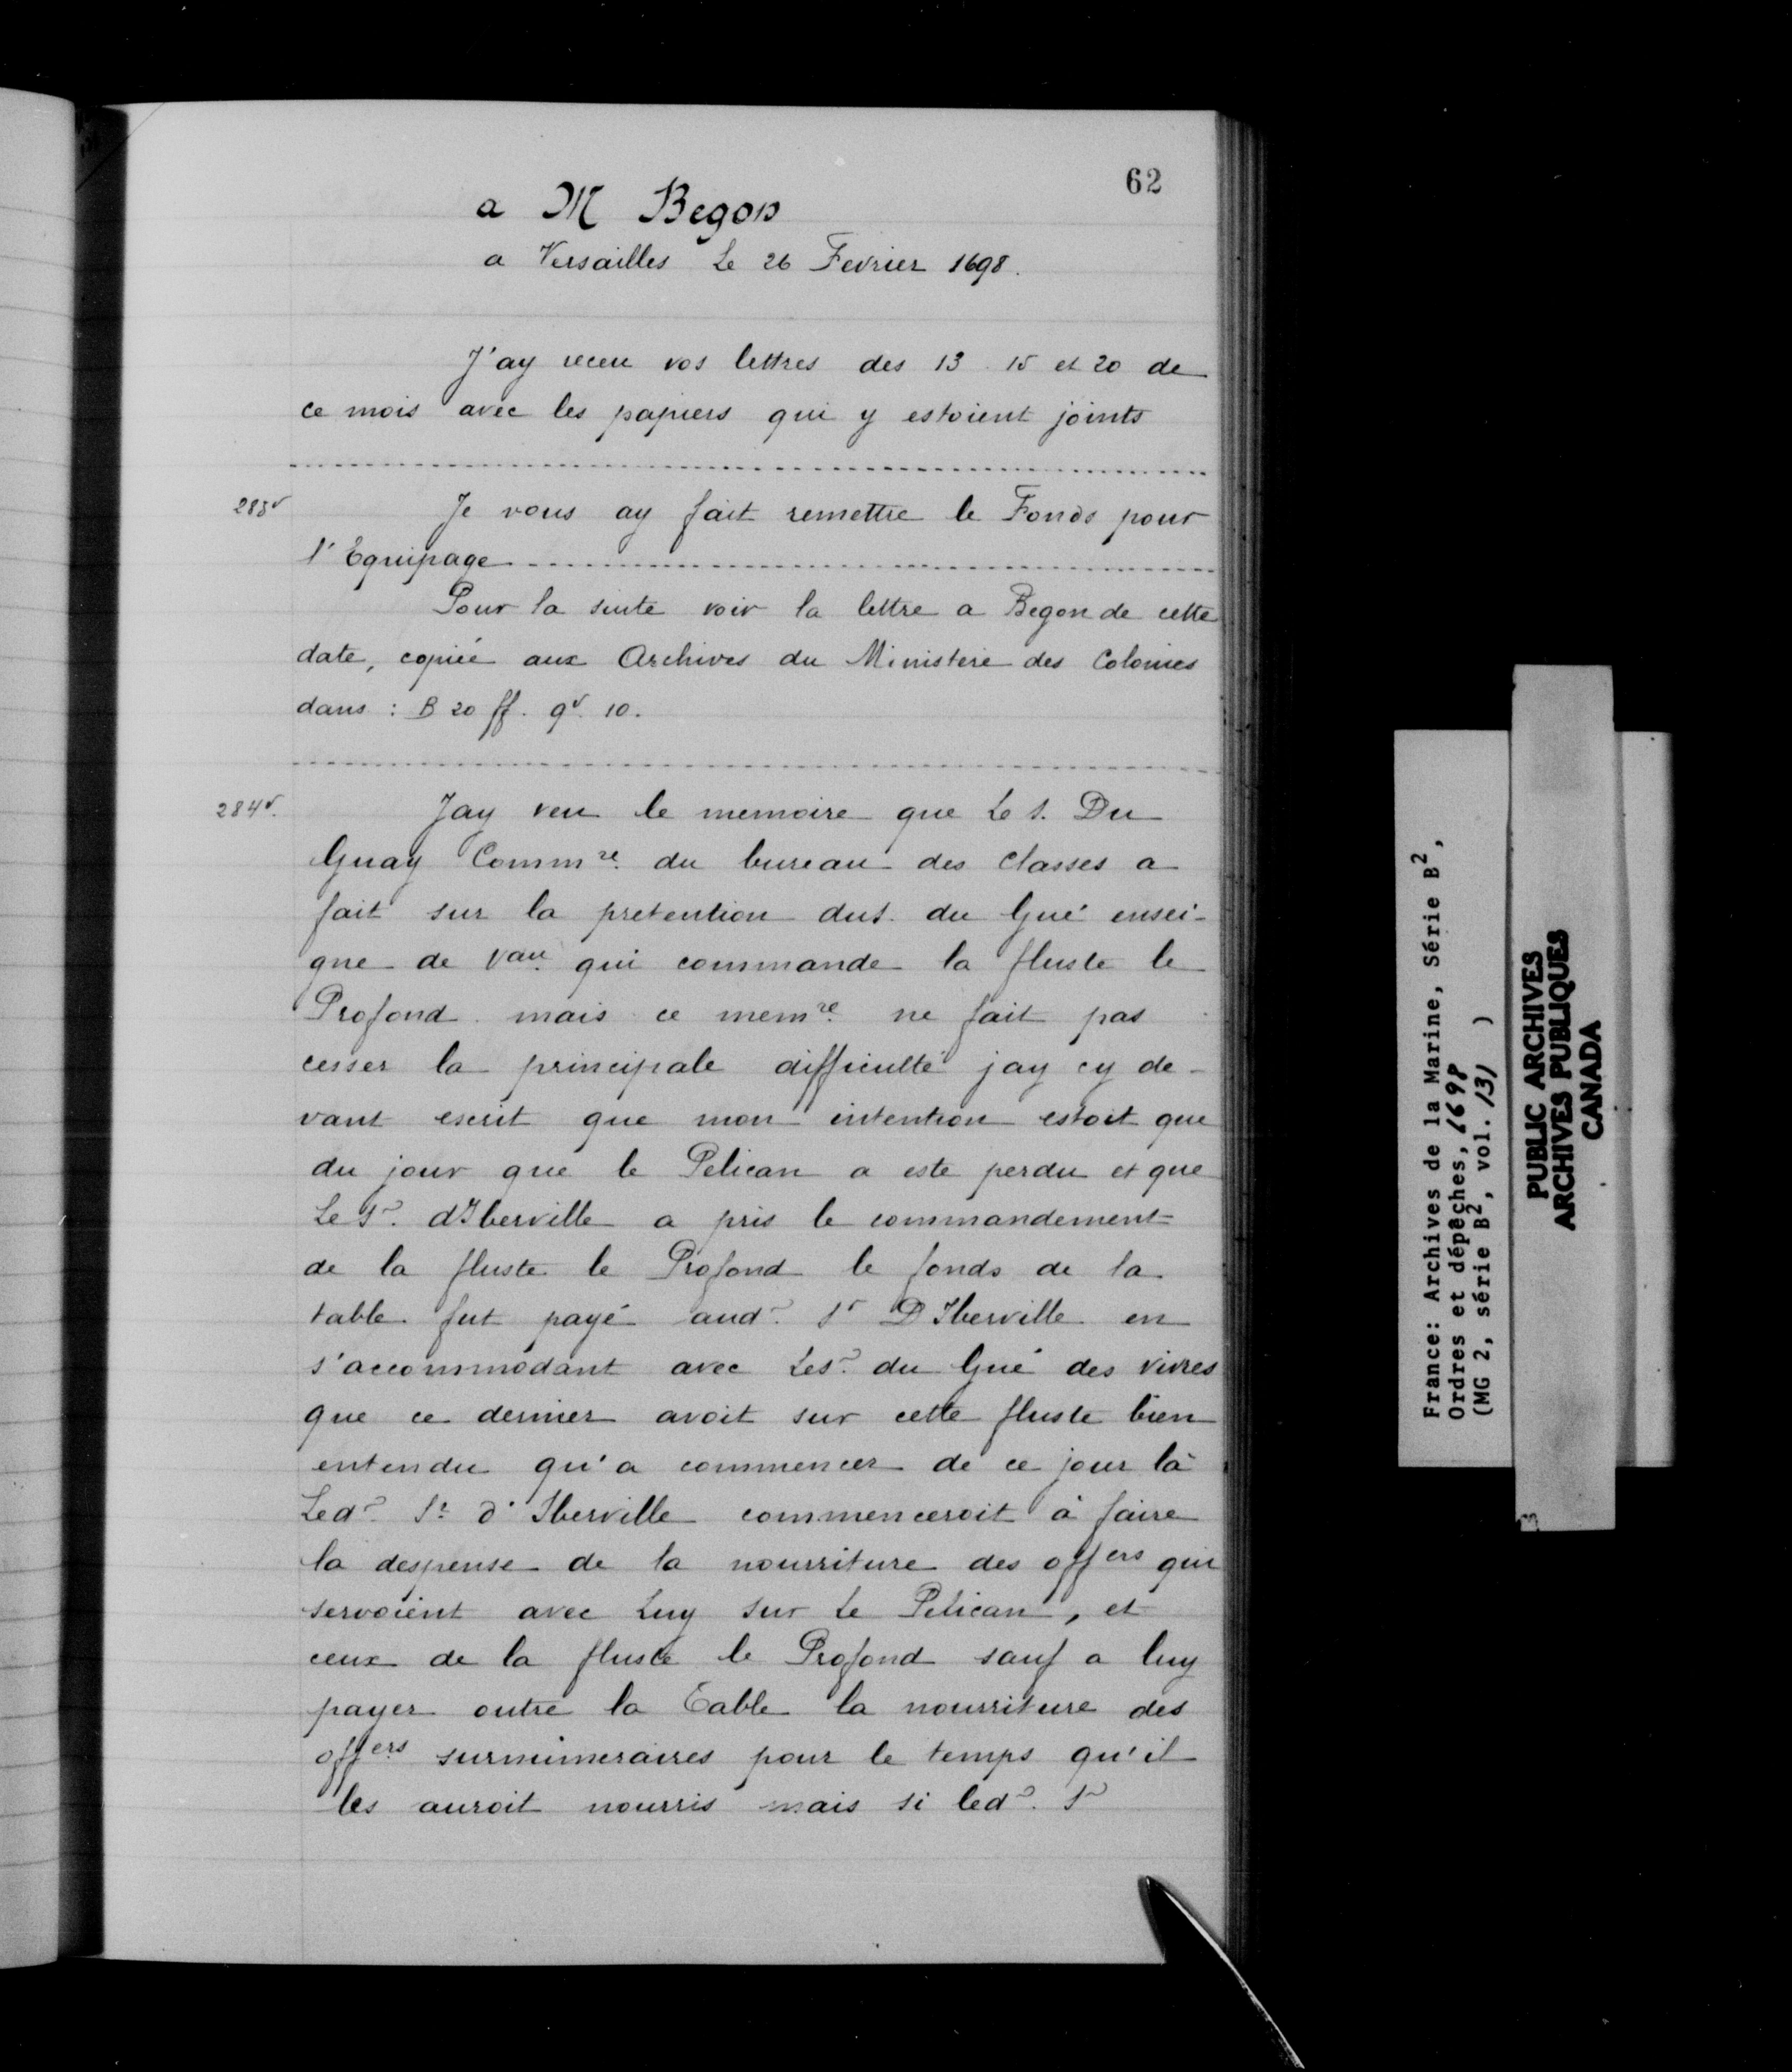 62
a M Begon
a Versailles Le 26 Fevrier 1698.
J'ay receu vos lettres des 13 15 et 20 de
ce mois avec les papiers qui y estoient joints
283v Je vous ay fait remettre le Fonds pour
l'Equipage
Pour la suite voir la lettre a Begon de cette
date, copiée aux Archives du Ministère des Colonies
dans : B 20 ff. 9v. 10.
284v. Jay veu le memoire que Le s. Du
Guay Commre. du bureau des Classes a
fait sur la pretention du s. du Gué ensei-
gne de Vau. qui commande la fluste le
Profond mais ce memre. ne fait pas
cesser la principale difficulté jay cy de-
vant escrit que mon intention estoit que
du jour que le Pelican a este perdu et que
Le Sr. d'Iberville a pris le commandement
de la fluste le Profond le fonds de la
table fut payé aud. Sr D'Iberville en
s'accommodant avec Le sr. du Gué des vivres
que ce dernier avoit sur cette fluste bien
entendu qu'a commencer de ce jour là
Led. Sr. d'Iberville commenceroit à faire
la despense de la nourriture des offers qui
servoient avec Luy sur Le Pelican, et
ceux de la fluste le Profond sauf a luy
payer outre la Table la nourriture des
offers surnumeraires pour le temps qu'il
les auroit nourris mais si led. Sr
France: Archives de la Marine, Série B2,
Ordres et dépêches, 1698
(MG 2, série B2, vol. 131 )
PUBLIC ARCHIVES
ARCHIVES PUBLIQUES
CANADA